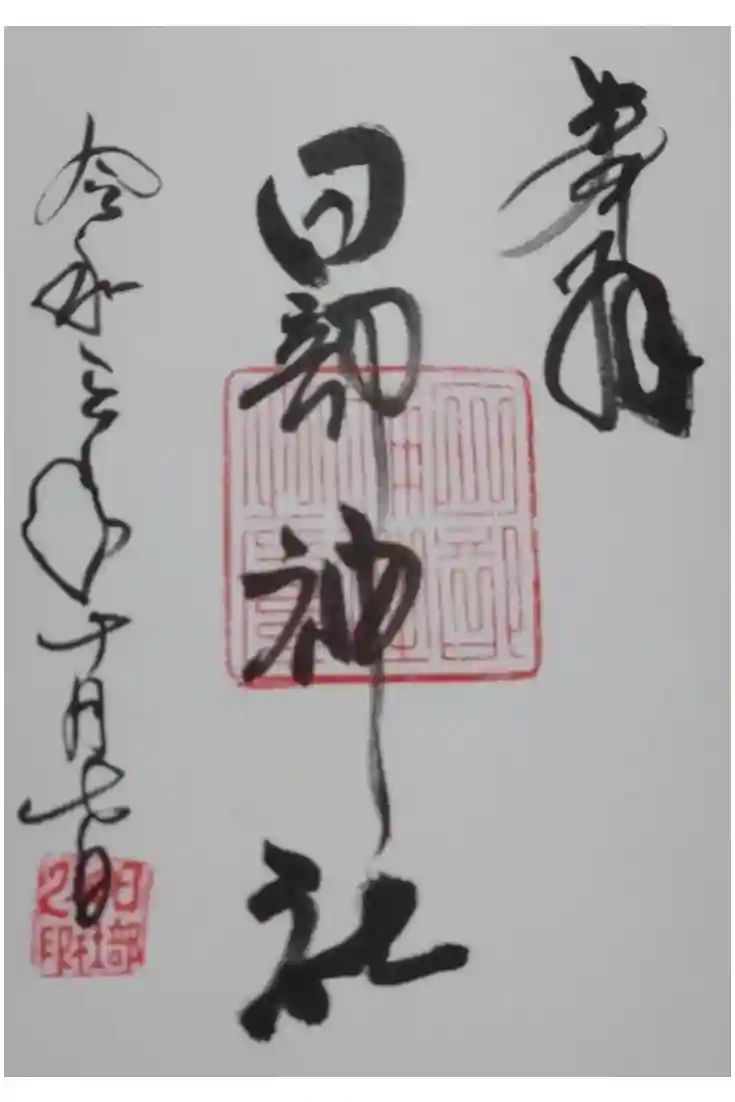 奉拝
日部神社
令和三年十月七日
日部
社
之印